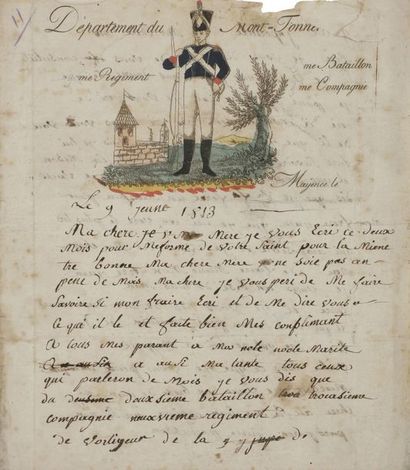 Département du Mont-Tonne.
me Régiment
me Bataillon
me Compagnie
Majence le
Le 9 jeune 1813
Ma chere je v Mere je vous Ecri ce deux
Mois pour Miforme de votre Saint pour la Miene
tre bonne Ma chere Mere ne soie pas an
pene de Mois Ma chere je vous peri de Me faire
Savoire Si mon fraire Ecri il de Me dire vous
ce qui il le il faite bien Mes conpliment
a tous Mes parant a Ma
a ausi Ma tante tous ceux
qui parleron de Mois je vous dis que
du douxsieme bataillon troisieme
compagnie neuxvieme regiment
de voltigeur de la